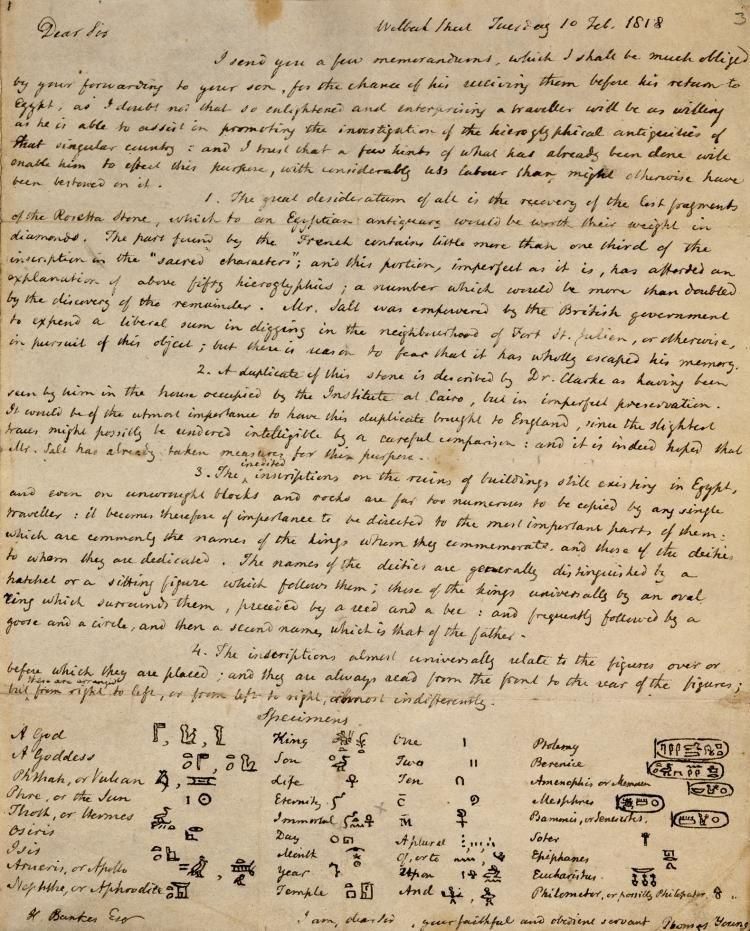 3
Dear Sir
Welbeck Street Tuesday 10 Feb. 1818
I send you a few memorandums, which I shall be much obliged
by your forwarding to your son, for the chance of his receiving them before his return to
Egypt; as I doubt not that so enlightened and enterprising a traveller will be as willing
as he is able to assist in promoting the investigation of the hieroglyphical antiquities of
that singular country: and I trust that a few hints of what has already been done will
enable him to effect this purpose, with considerably less labour than might otherwise have
been bestowed on it.
1. The great desideratum of all is the recovery of the lost fragments
of the Rosetta Stone, which to an Egyptian antiquary would be worth their weight in
diamonds. The part found by the French contains little more than one third of the
inscription in the "sacred characters"; and this portion, imperfect as it is, has afforded an
explanation of above fifty hieroglyphics; a number which would be more than doubled
by the discovery of the remainder. Mr. Salt was empowered by the British government
to expend a liberal sum in digging in the neighbourhood of Fort St. Julien, or otherwise,
in pursuit of this object; but there is reason to fear that it has wholly escaped his memory.
2. A duplicate of this stone is described by Dr. Clarke as having been
seen by him in the house occupied by the Institute at Cairo, but in imperfect preservation.
It would be of the utmost importance to have this duplicate brought to England, since the slightest
traces might possibly be rendered intelligible by a careful comparison: and it is indeed hoped that
Mr. Salt has already taken measures for this purpose.
3. The inedited inscriptions on the ruins of buildings still existing in Egypt,
and even on unwrought blocks and rocks are far too numerous to be copied by any single
traveller: it becomes therefore of importance to be directed to the most important parts of them:
which are commonly the names of the kings whom they commemorate, and those of the deities
to whom they are dedicated. The names of the deities are generally distinguished by a
hatchet or a sitting figure which follows them; those of the kings universally by an oval
ring which surrounds them, preceded by a reed and a bee: and frequently followed by a
goose and a circle, and then a second name, which is that of the father.
4. The inscriptions almost universally relate to the figures over or
before which they are placed; and they are always read from the front to the rear of the figures;
but these are arranged from right to left, or from left to right, almost indifferently.
Specimens
A God King One Ptolemy
A Goddess Son Two Berenice
Phthah, or Vulcan Life Ten Amenophis or Memnon
Phre, or the Sun Eternity C Mesphres
Thoth, or Hermes Immortal M
Osiris Day A plural Soter
Isis Month Of, or to Epiphanes
Arueris, or Apollo Year Upon Eucharistus
Nephthe, or Aphrodite Temple And Philometor, or possibly Philopator
H Bankes Esqr I am, dear sir, your faithful and obedient servant Thomas Young